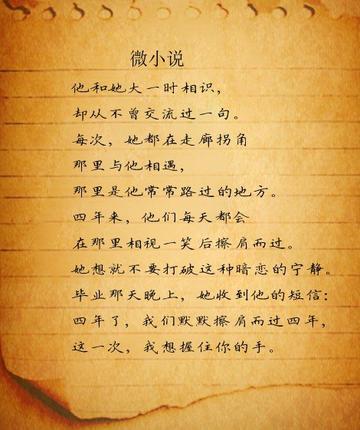 微小说
他和她大一时相识，
却从不曾交流过一句。
每次，她都在走廊拐角
那里与他相遇，
那里是他常常路过的地方。
四年来，他们每天都会
在那里相视一笑后擦肩而过。
她想就不要打破这种暗恋的宁静。
毕业那天晚上，她收到他的短信：
四年了，我们默默擦肩而过四年，
这一次，我想握住你的手。